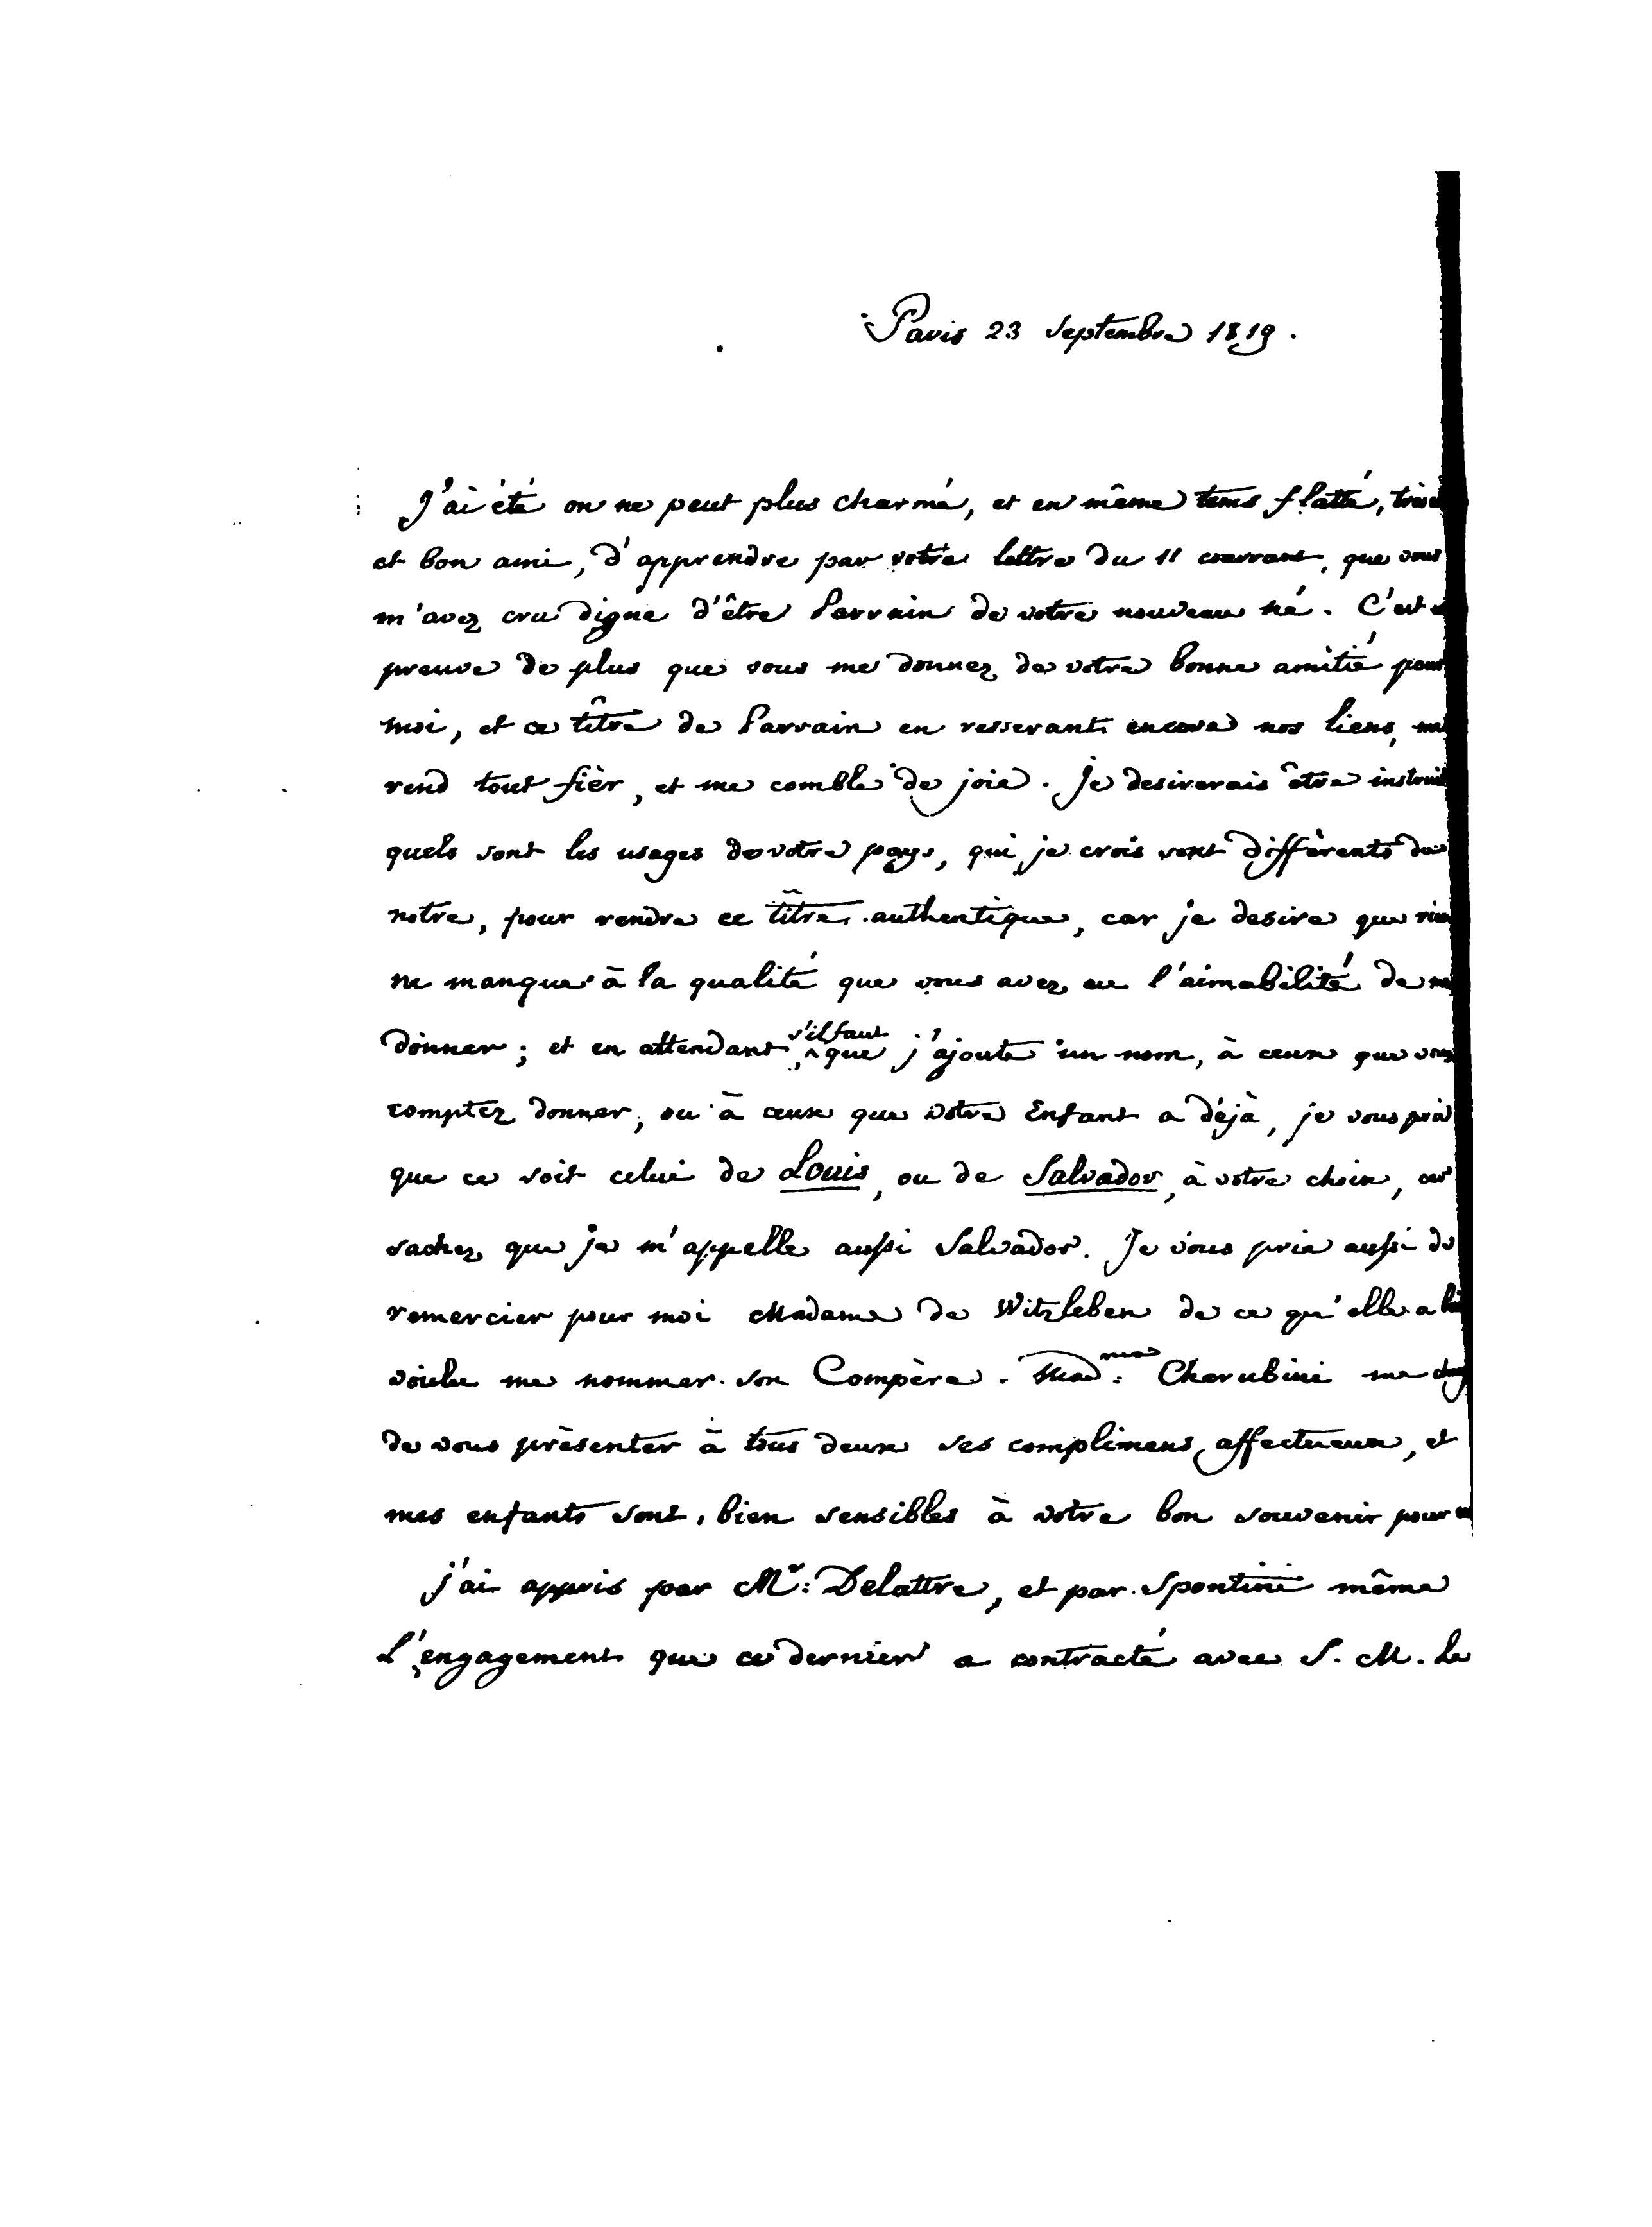 Paris 23 Septembre 1819.
J'ai été on ne peut plus charmé, et en même tems flatté,
et bon ami, d'apprendre par votre lettre du 11 courrant, que vous
m'avez cru digne d'être Parrain de votre nouveau né. C'est
preuve de plus que vous me donnez de votre bonne amitié pour
moi, et ce tître de Parrain en resserant encore nos liens, me
rend tout fièr, et me comble de joie. Je desirerais être instruit
quels sont les usages de votre pays, qui je crois sont diffèrents du
notre, pour rendre ce tître authentique, car je desire que rien
ne manque à la qualité que vous avez eu l'aimabilité de me
donner; et en attendant, s'il faut que j'ajoute un nom, à ceux que vous
comptez donner, ou à ceux que votre Enfant a déjà, je vous prie
que ce soit celui de Louis, ou de Salvador, à votre choix, car
sachez que je m'appelle aussi Salvador. Je vous prie aussi de
remercier pour moi Madame de Witzleben de ce qu'elle a
voulu me nommer son Compère. Mad.me Cherubini me
de vous prèsenter à tous deux ses complimens affectueux, et
mes enfants sont bien sensibles à votre bon souvenir pour
j'ai appris par Mr: Delattre, et par Spontini même
L'engagement que ce dernier a contracté avec S. M. le